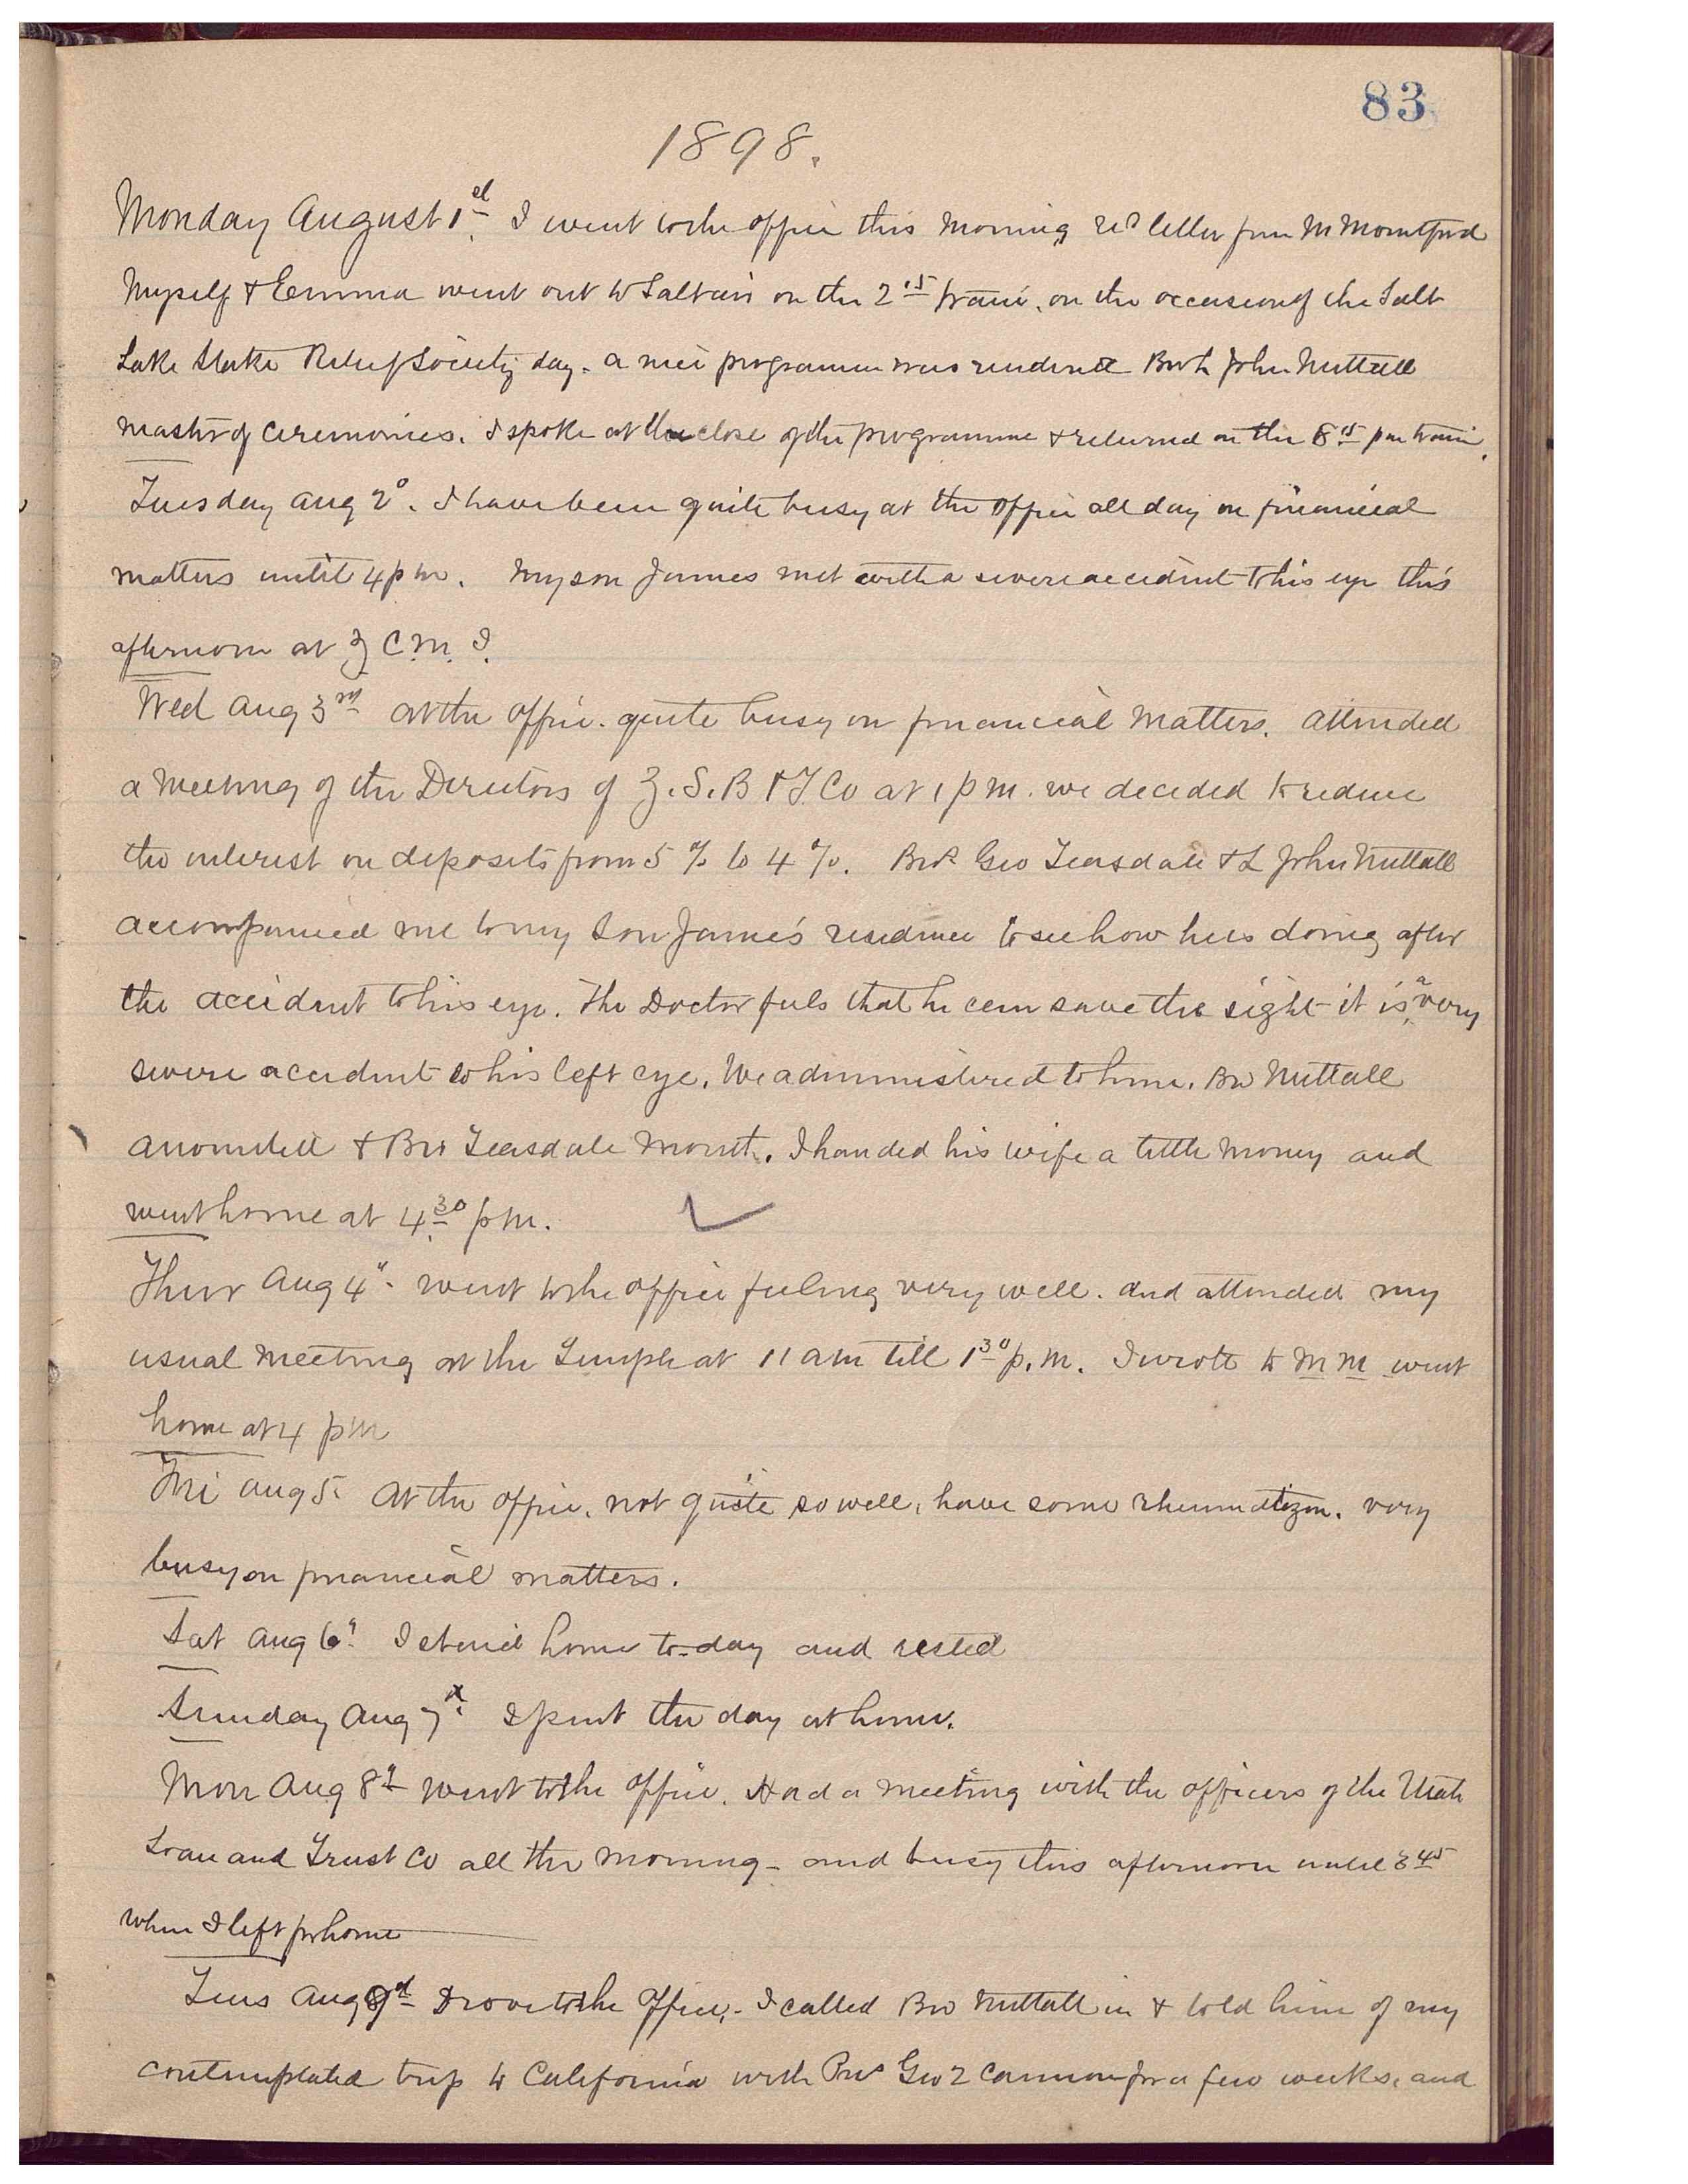 83
1898.
Monday August 1st I went to the office this morning recd letter from M Mountford
Myself & Emma went out to Saltair on the 2 15 train. on the occasion of the Salt
Lake Stake Relief Society day. a nice programme was rendered Broth John Nuttall
master of ceremonies. I spoke at the close of the programme & returned on the 6 15 pm train.
Tuesday Aug 2d. I have been quite busy at the office all day on financial
matters until 4 pm. My son James met with a severe accident to his eye this
afternoon at Z C. M. I.
Wed Aug 3rd at the office. quite busy on financial matters. attended
a meeting of the Directors of Z. S. B & T. Co at 1 pm. we decided to reduce
the interest on deposits from 5 % to 4 %. Bros Geo Teasdale & L John Nuttall
accompanied me to my son James's residence to see how he is doing after
the accident to his eye. The Doctor feels that he can save the sight - it is a very
severe accident to his left eye. We administered to him. Bro Nuttall
anointed & Bro Teasdale mouth. I handed his wife a little money and
went home at 4 30 pm.
Thur Aug 4" - went to the office feeling very well. and attended my
usual meeting at the Temple at 11 am till 1 30 p. m. I wrote to M M went
home at 4 pm
Fri Aug 5. At the office, not quite so well, have some rheumatizm. very
busy on financial matters.
Sat Aug 6" I staid home to-day and rested
Sunday Aug 7th. Spent the day at home.
Mon Aug 8th went to the office. Had a meeting with the officers of the Utah
Loan and Trust Co all the morning - and busy this afternoon until 3 45
when I left for home
Tues Aug 9th Drove to the office. - I called Bro Nuttall in & told him of my
contemplated trip to California with Pres Geo Q Cannon for a few weeks, and